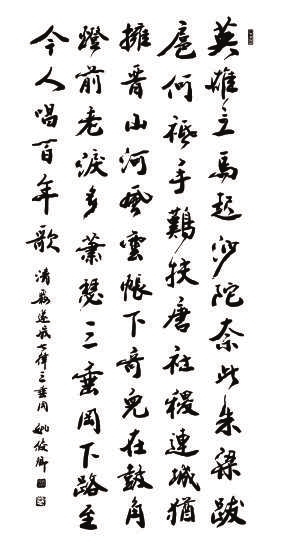 英雄立馬起沙陀奈此朱梁跋
扈何祗手難扶唐社稷連城猶
擁晉山河風雲帳下奇兒在鼓角
燈前老淚多蕭瑟三垂岡下路至
今人唱百年歌 清嚴遂成七律三垂岡 姚俊卿